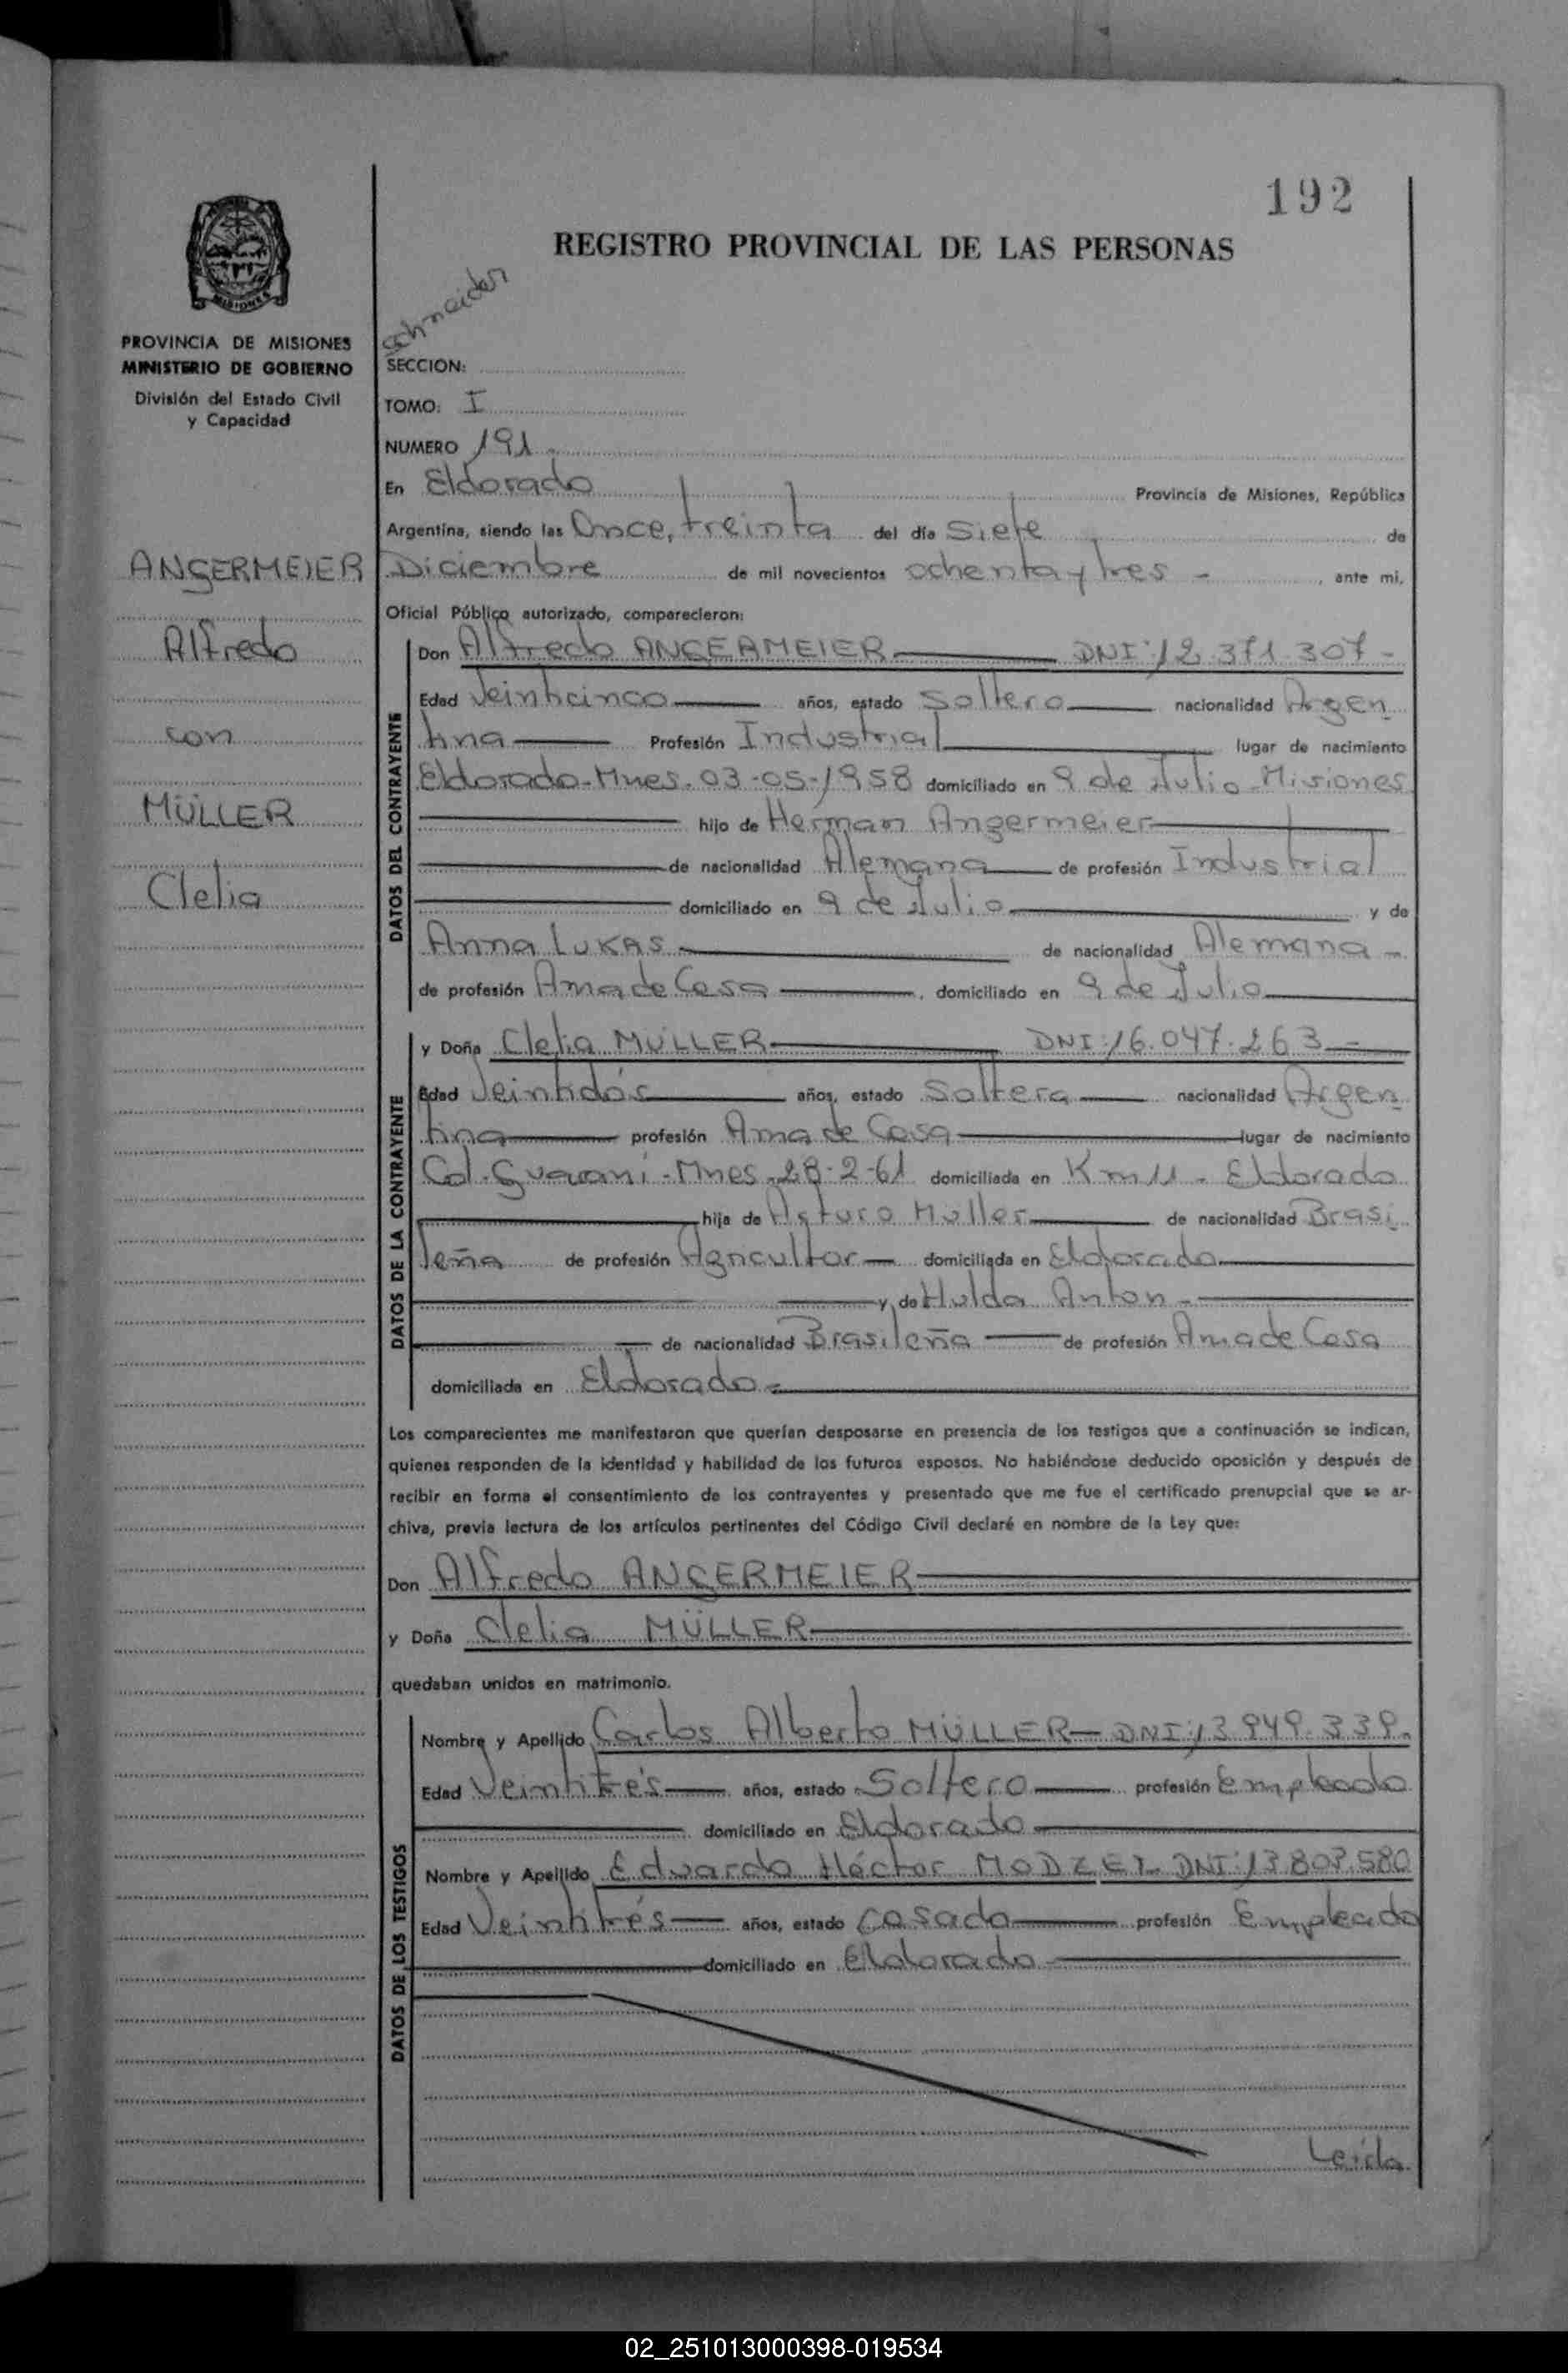 192
REGISTRO PROVINCIAL DE LAS PERSONAS
MISIONES
PROVINCIA DE MISIONES
MINISTERIO DE GOBIERNO
División del Estado Civil
y Capacidad
ANGERMEIER
Alfredo
con
MÜLLER
Clelia
Schneider
SECCION:
TOMO: I
NUMERO 191
En Eldorado Provincia de Misiones, República
Argentina, siendo las Once, treinta del día Siete de
Diciembre de mil novecientos ochenta y tres - , ante mi,
Oficial Público autorizado, comparecieron:
DATOS DEL CONTRAYENTE
Don Alfredo ANGERMEIER DNI: 12.371.307 -
Edad Veinticinco años, estado Soltero nacionalidad Argen
tina Profesión Industrial lugar de nacimiento
Eldorado-Mnes. 03-05-1958 domiciliado en 9 de Julio - Misiones
hijo de Herman Angermeier
de nacionalidad Alemana de profesión Industrial
domiciliado en 9 de Julio y de
Anna LUKAS de nacionalidad Alemana -
de profesión Ama de Casa , domiciliado en 9 de Julio
DATOS DE LA CONTRAYENTE
y Doña Clelia MÜLLER DNI: 16.047.263 -
Edad Veintidós años, estado Soltera nacionalidad Argen
tina profesión Ama de Casa lugar de nacimiento
Col. Guaraní - Mnes - 28-2-61 domiciliada en Km 11 - Eldorado
hija de Arturo Müller de nacionalidad Brasi
leña de profesión Agricultor domiciliada en Eldorado
y de Hulda Anton -
de nacionalidad Brasileña de profesión Ama de Casa
domiciliada en Eldorado -
Los comparecientes me manifestaron que querían desposarse en presencia de los testigos que a continuación se indican,
quienes responden de la identidad y habilidad de los futuros esposos. No habiéndose deducido oposición y después de
recibir en forma el consentimiento de los contrayentes y presentado que me fue el certificado prenupcial que se ar-
chiva, previa lectura de los artículos pertinentes del Código Civil declaré en nombre de la Ley que:
Don Alfredo ANGERMEIER
y Doña Clelia MÜLLER
quedaban unidos en matrimonio.
DATOS DE LOS TESTIGOS
Nombre y Apellido Carlos Alberto MÜLLER - DNI: 13.949.339.
Edad Veintitrés años, estado Soltero profesión Empleado
domiciliado en Eldorado
Nombre y Apellido Eduardo Héctor MODZEL DNI: 13.807.580
Edad Veintitrés años, estado Casado profesión Empleado
domiciliado en Eldorado
Leída
02_251013000398-019534